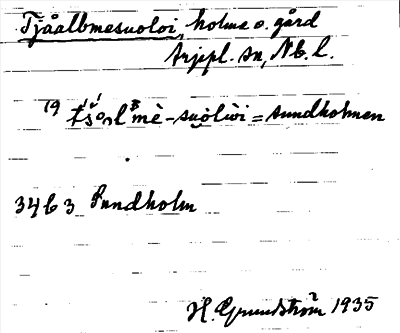 Tjåålbmesuoloi, holme o. gård
Arjepl. sn, Nb. l.
19 -suo̬lùi = sundholmen
3463 Sundholm
H. Grundström 1935